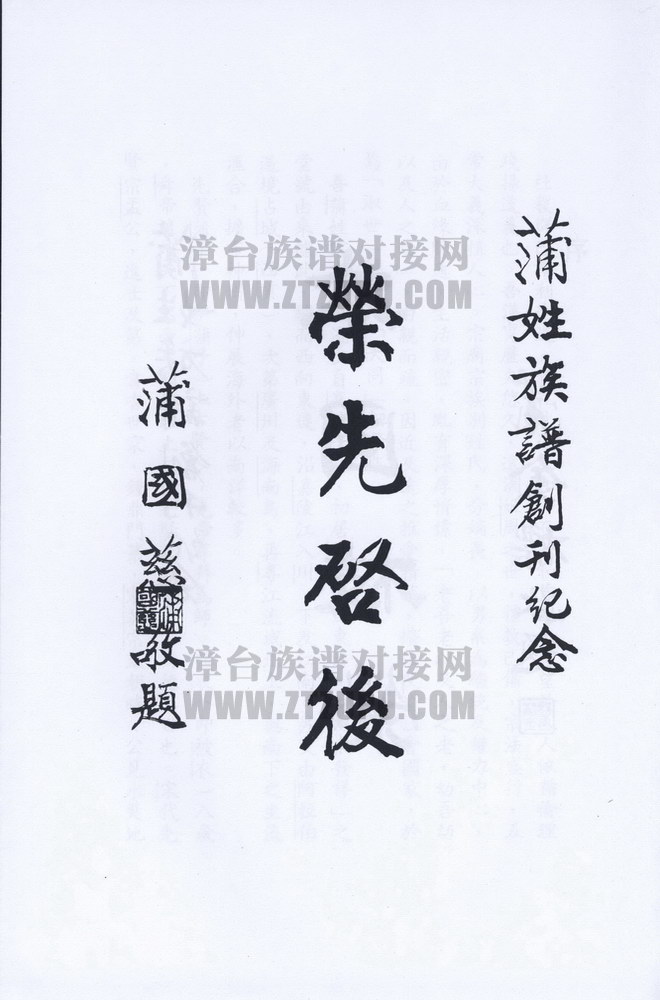 蒲姓族譜創刊紀念
榮先啓後
蒲國慈敬題
漳台族谱对接网
漳台族谱对接网